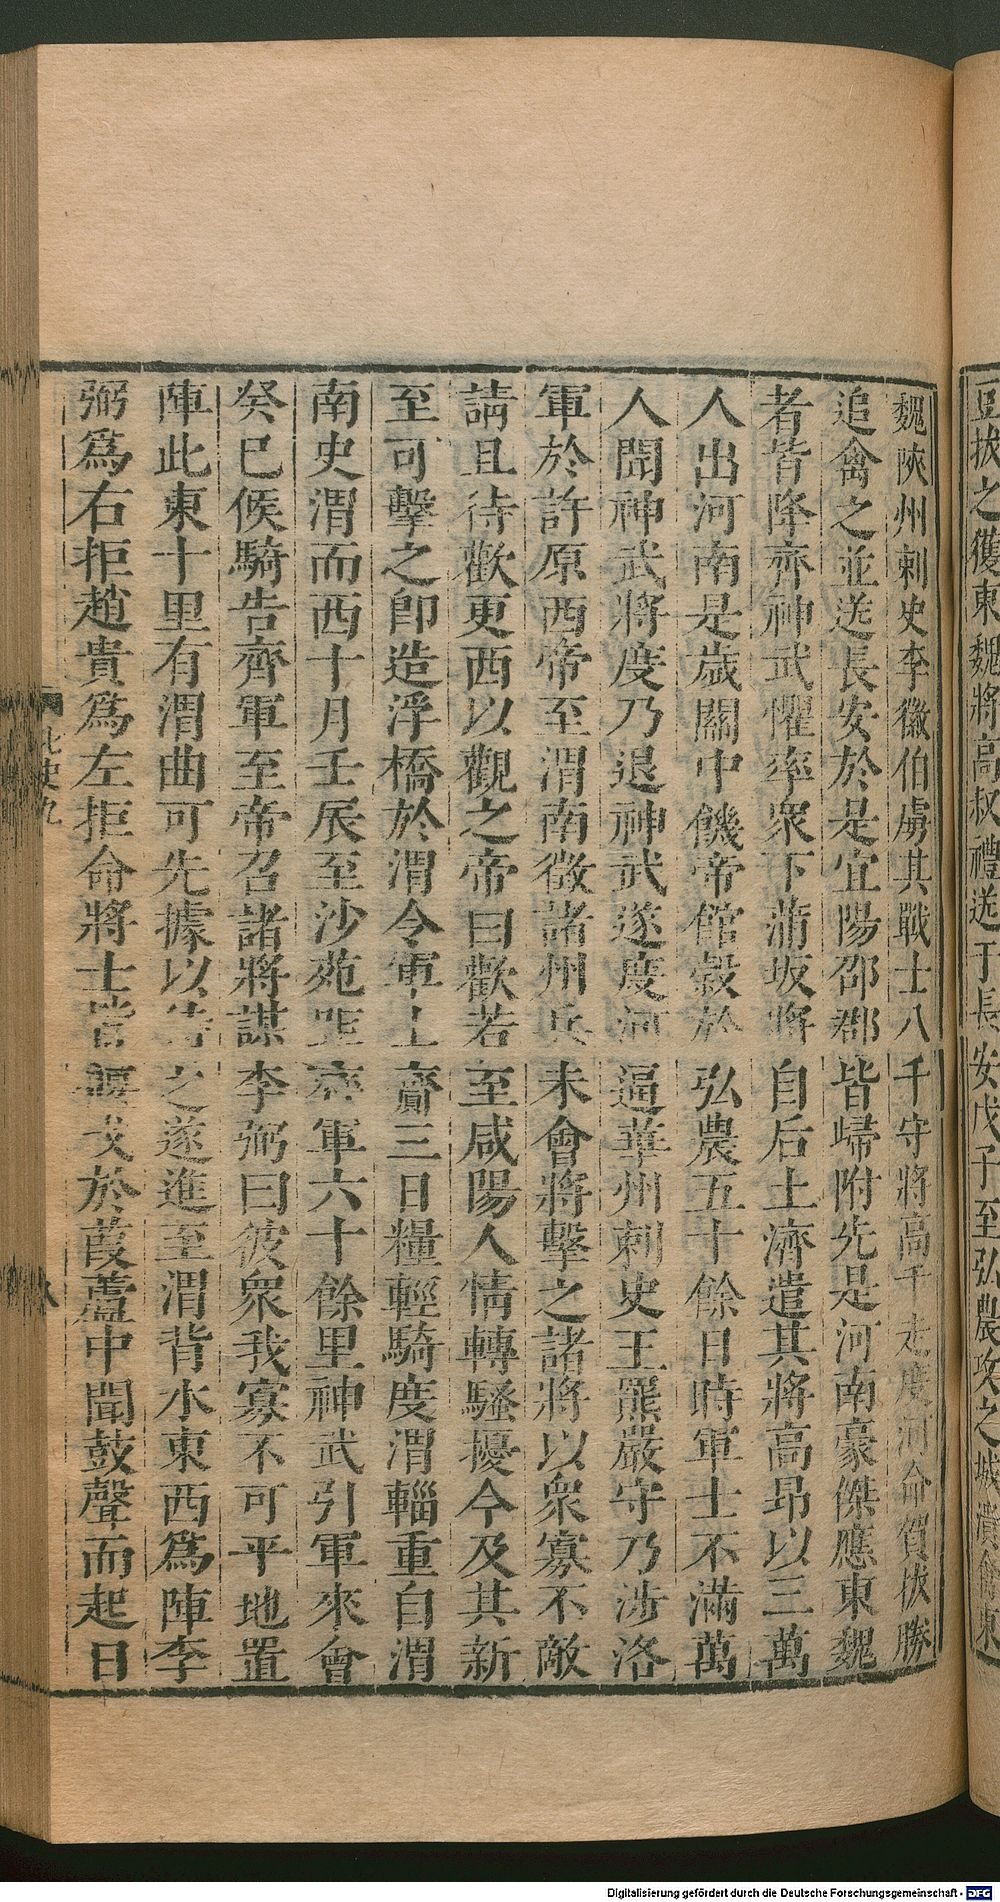 豆拔之獲東魏將高叔禮送于長安戊子至弘農攻之城潰
魏陝州刺史李徽伯虜其戰士八千守將高千走度河命賀拔勝
追禽之並送長安於是宜陽邵郡皆歸附先是河南豪傑應東魏
者皆降齊神武懼率眾下蒲坂將自后土濟遣其將高昂以三萬
人出河南是歲關中饑帝館穀於弘農五十餘日時軍士不滿萬
人聞神武將度乃退神武遂度河逼華州刺史王羆嚴守乃涉洛
軍於許原西帝至渭南徵諸州兵未會將擊之諸將以衆寡不敵
請且待歡更西以觀之帝曰歡若至咸陽人情轉騷擾今及其新
至可擊之卽造浮橋於渭令軍士齎三日糧輕騎度渭輜重自渭
南史渭而西十月壬辰至沙苑距齊軍六十餘里神武引軍來會
癸巳候騎告齊軍至帝召諸將謀李弼曰彼衆我寡不可平地置
陣此東十里有渭曲可先據以待之遂進至渭背水東西爲陣李
弼爲右拒趙貴爲左拒命將士皆偃戈於葭蘆中聞鼓聲而起日
北史九
Digitalisierung gefördert durch die Deutsche Forschungsgemeinschaft - DFG